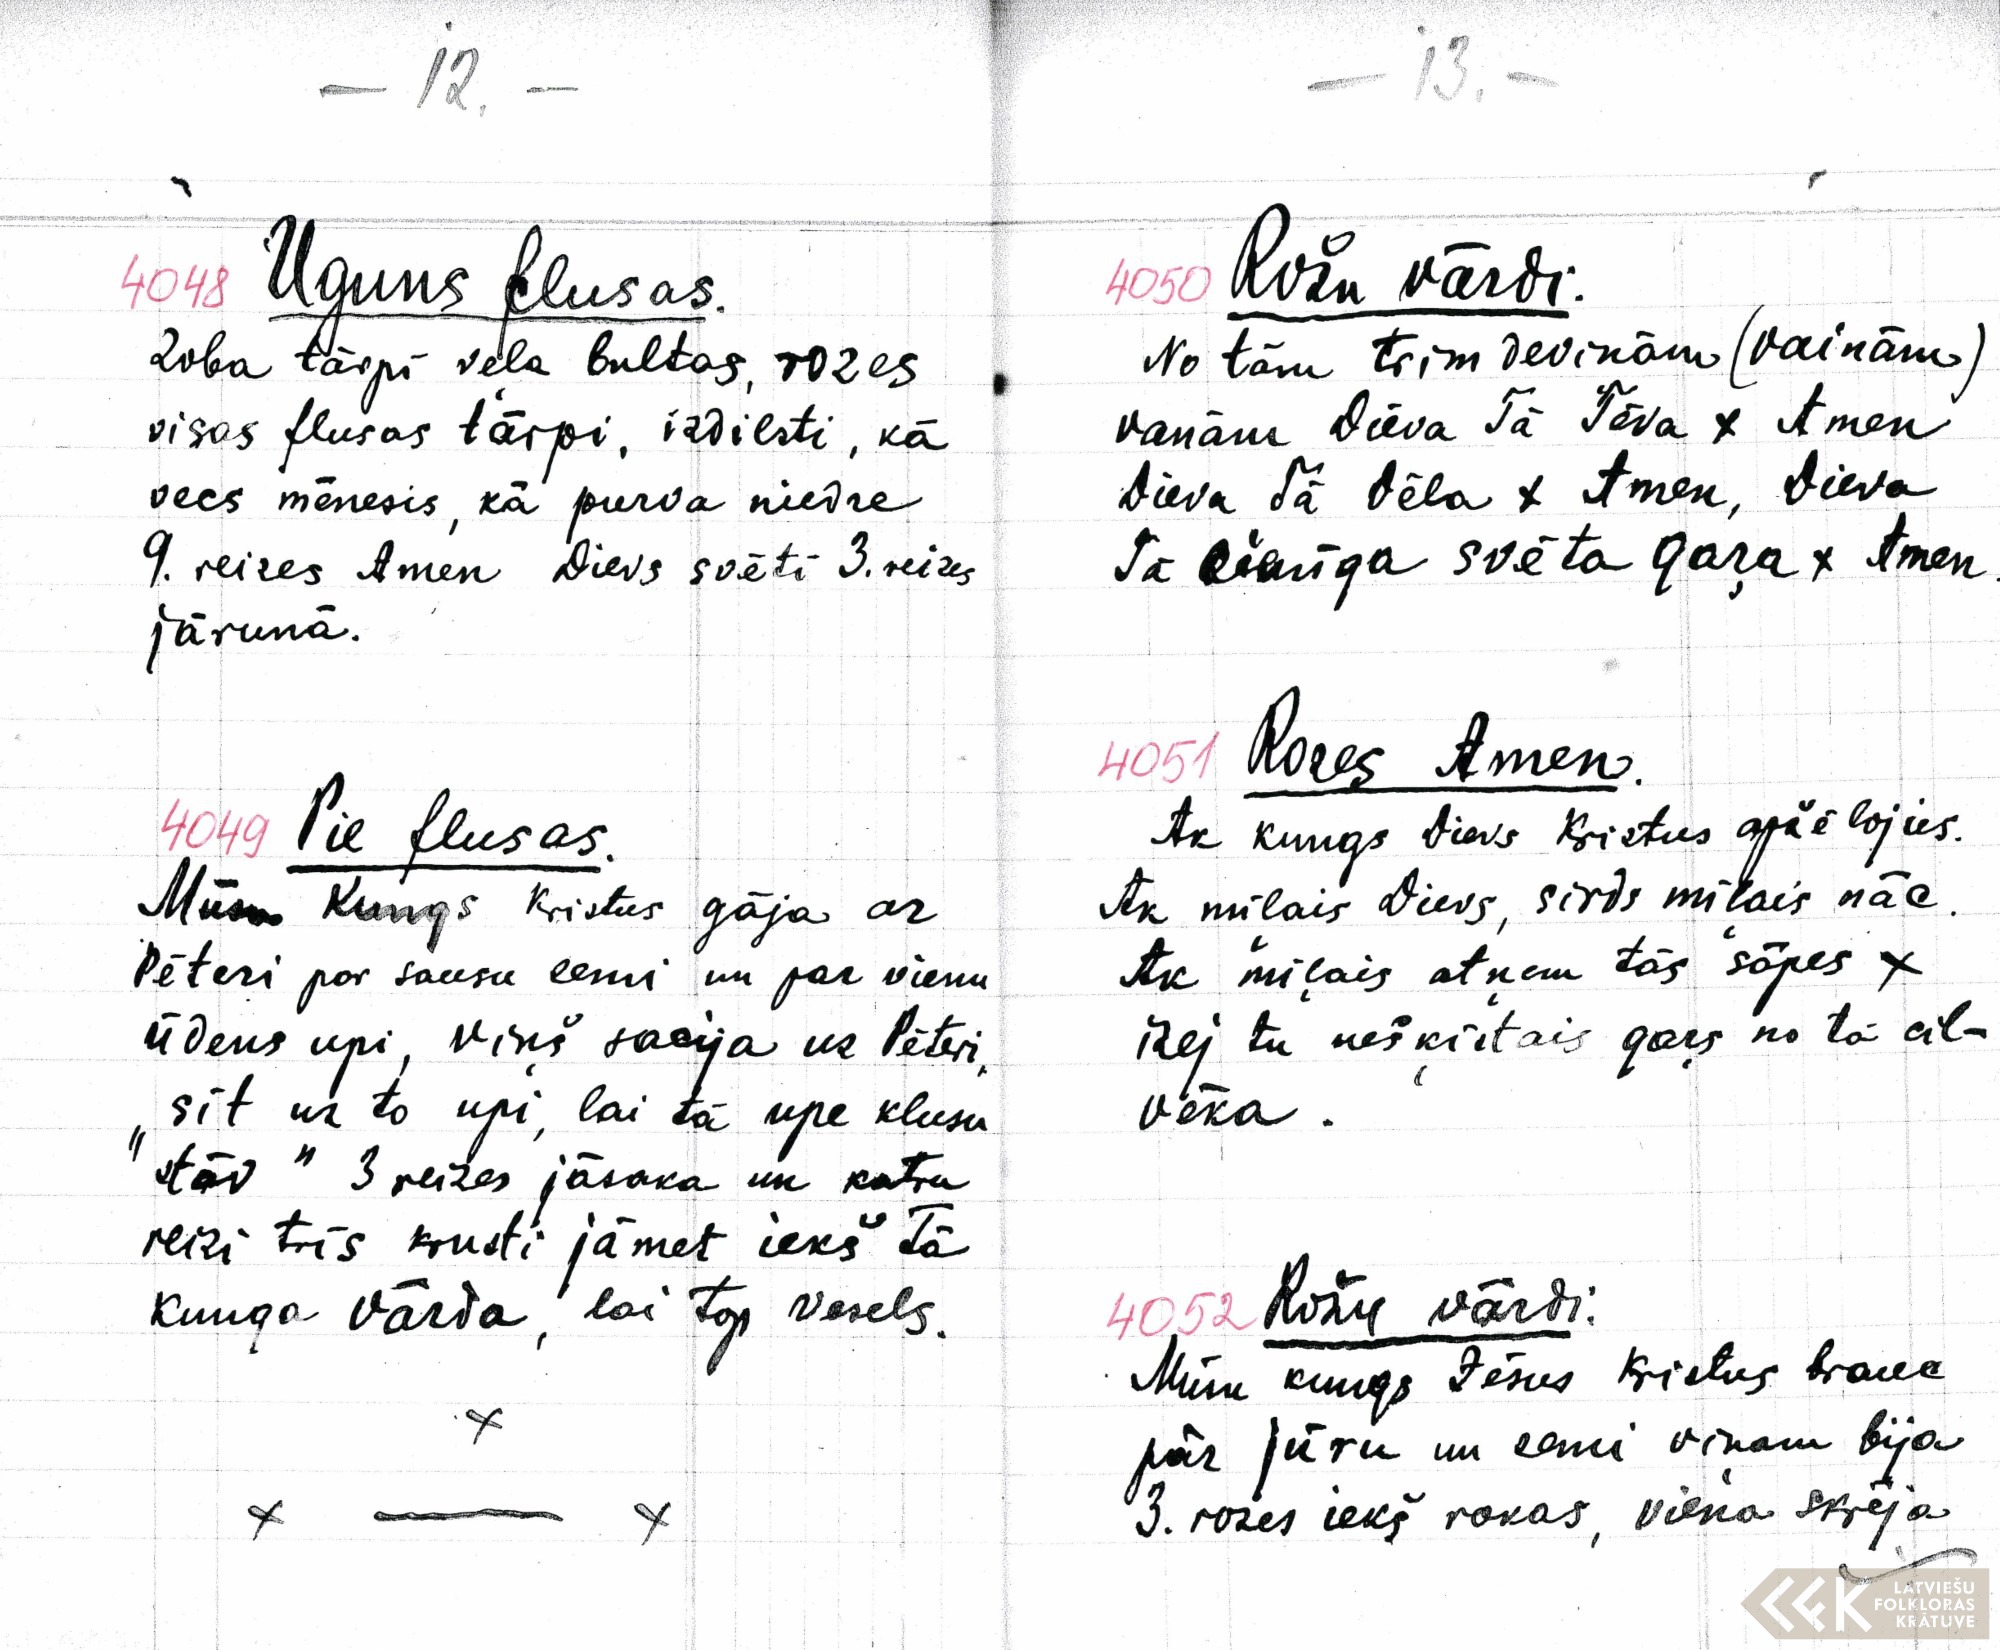 — 12. —
4048 Uguns flusas.
Zoba tārpi vela bultas, rozes
visas flusas tārpi, izdilsti, kā
vecs mēnesis, kā purva niedre
9. reizes Amen Dievs svētī 3. reizes
jārunā.
4049 Pie flusas.
Mūsu Kungs Kristus gāja ar
Pēteri par sausu zemi un par vienu
ūdens upi, viņš sacīja uz Pēteri,
„sit uz to upi, lai tā upe klusu
stāv" 3 reizes jāsaka un katru
reizi trīs krusti jāmet iekš Tā
kunga vārda, lai top vesels.
x
x — x
— 13. —
4050 Rožu vārdi.
No tām trim deviņām (vainām)
vanām Dieva Tā Tēva x Amen
Dieva Tā Dēla x Amen, Dieva
Tā svēta gara x Amen.
4051 Rozes Amen.
Ak kungs Dievs Kristus apžēlojies.
Ak mīļais Dievs, sirds mīļais nāc.
Ak mīļais atņem tās sāpes x
izej tu nešķīstais gars no tā cil-
vēka.
4052 Rožu vārdi.
Mūsu kungs Jēsus Kristus brauc
pār jūru un zemi viņam bija
3. rozes iekš rokas, viena skrēja
LATVIEŠU
FOLKLORAS
KRĀTUVE